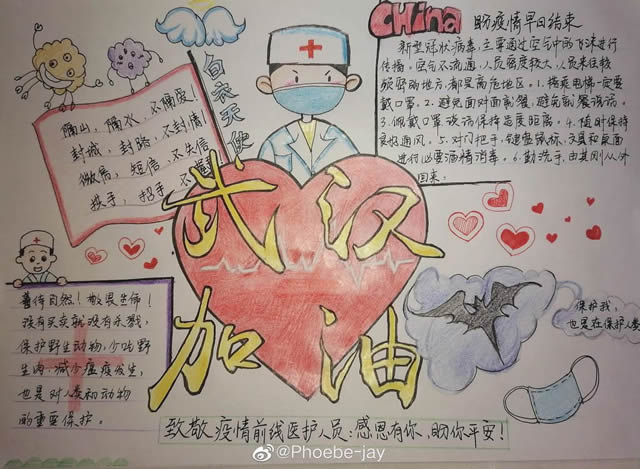 China 盼疫情早日结束
白衣天使
隔山，隔水，不隔爱！
封城，封路，不封情！
微信，短信，不失信
招手，不
新型冠状病毒，主要通过空气中的飞沫进行
传播。空气不流通，人员密度较大，人员来往较
频繁的地方，都是高危地区。1.搭乘电梯一定要
戴口罩。2.避免面对面就餐，避免就餐谈话。
3.佩戴口罩谈话保持适度距离。4.随时保持
良好通风。5.对门把手，键盘鼠标，文具和桌面
进行必要酒精消毒。6.勤洗手，尤其刚从外
回来.
武汉
加油
善待自然！敬畏生命！
没有买卖就没有杀戮，
保护野生动物，不吃野
生肉，减少瘟疫发生，
也是对人类和动物
的重要保护。
保护我，
也是在保护人类
致敬疫情前线医护人员：感恩有你，盼你平安！
@Phoebe-jay